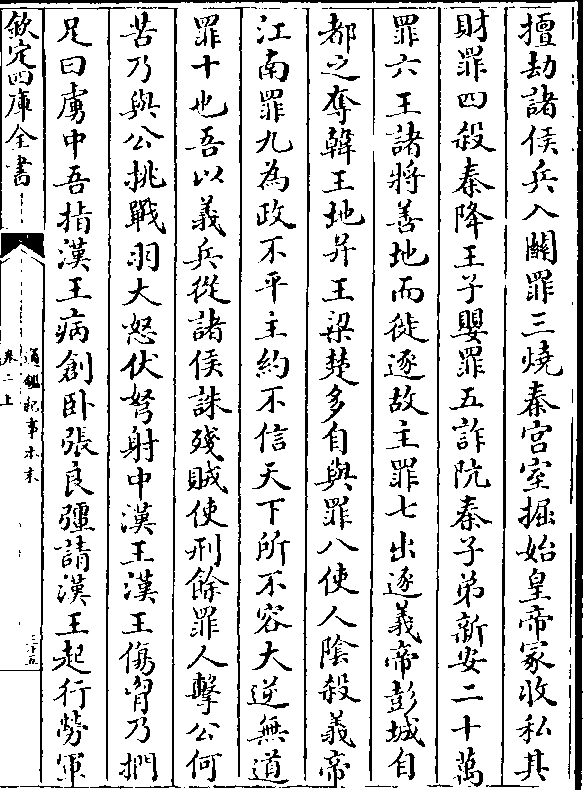 擅劫諸侯兵入關罪三燒秦宫室掘始皇帝冢收私其
財罪四殺秦降王子嬰罪五詐阬秦子弟新安二十萬
罪六王諸將善地而徙逐故主罪七出逐義帝彭城自
都之奪韓王地并王梁楚多自與罪八使人陰殺義帝
江南罪九為政不平主約不信天下所不容大逆無道
罪十也吾以義兵從諸侯誅殘賊使刑餘罪人擊公何
苦乃與公挑戰羽大怒伏弩射中漢王漢王傷胷乃捫
足曰虜中吾指漢王病創卧張良彊請漢王起行勞軍
欽定四庫全書
通鑑紀事本末
卷二上
三十五